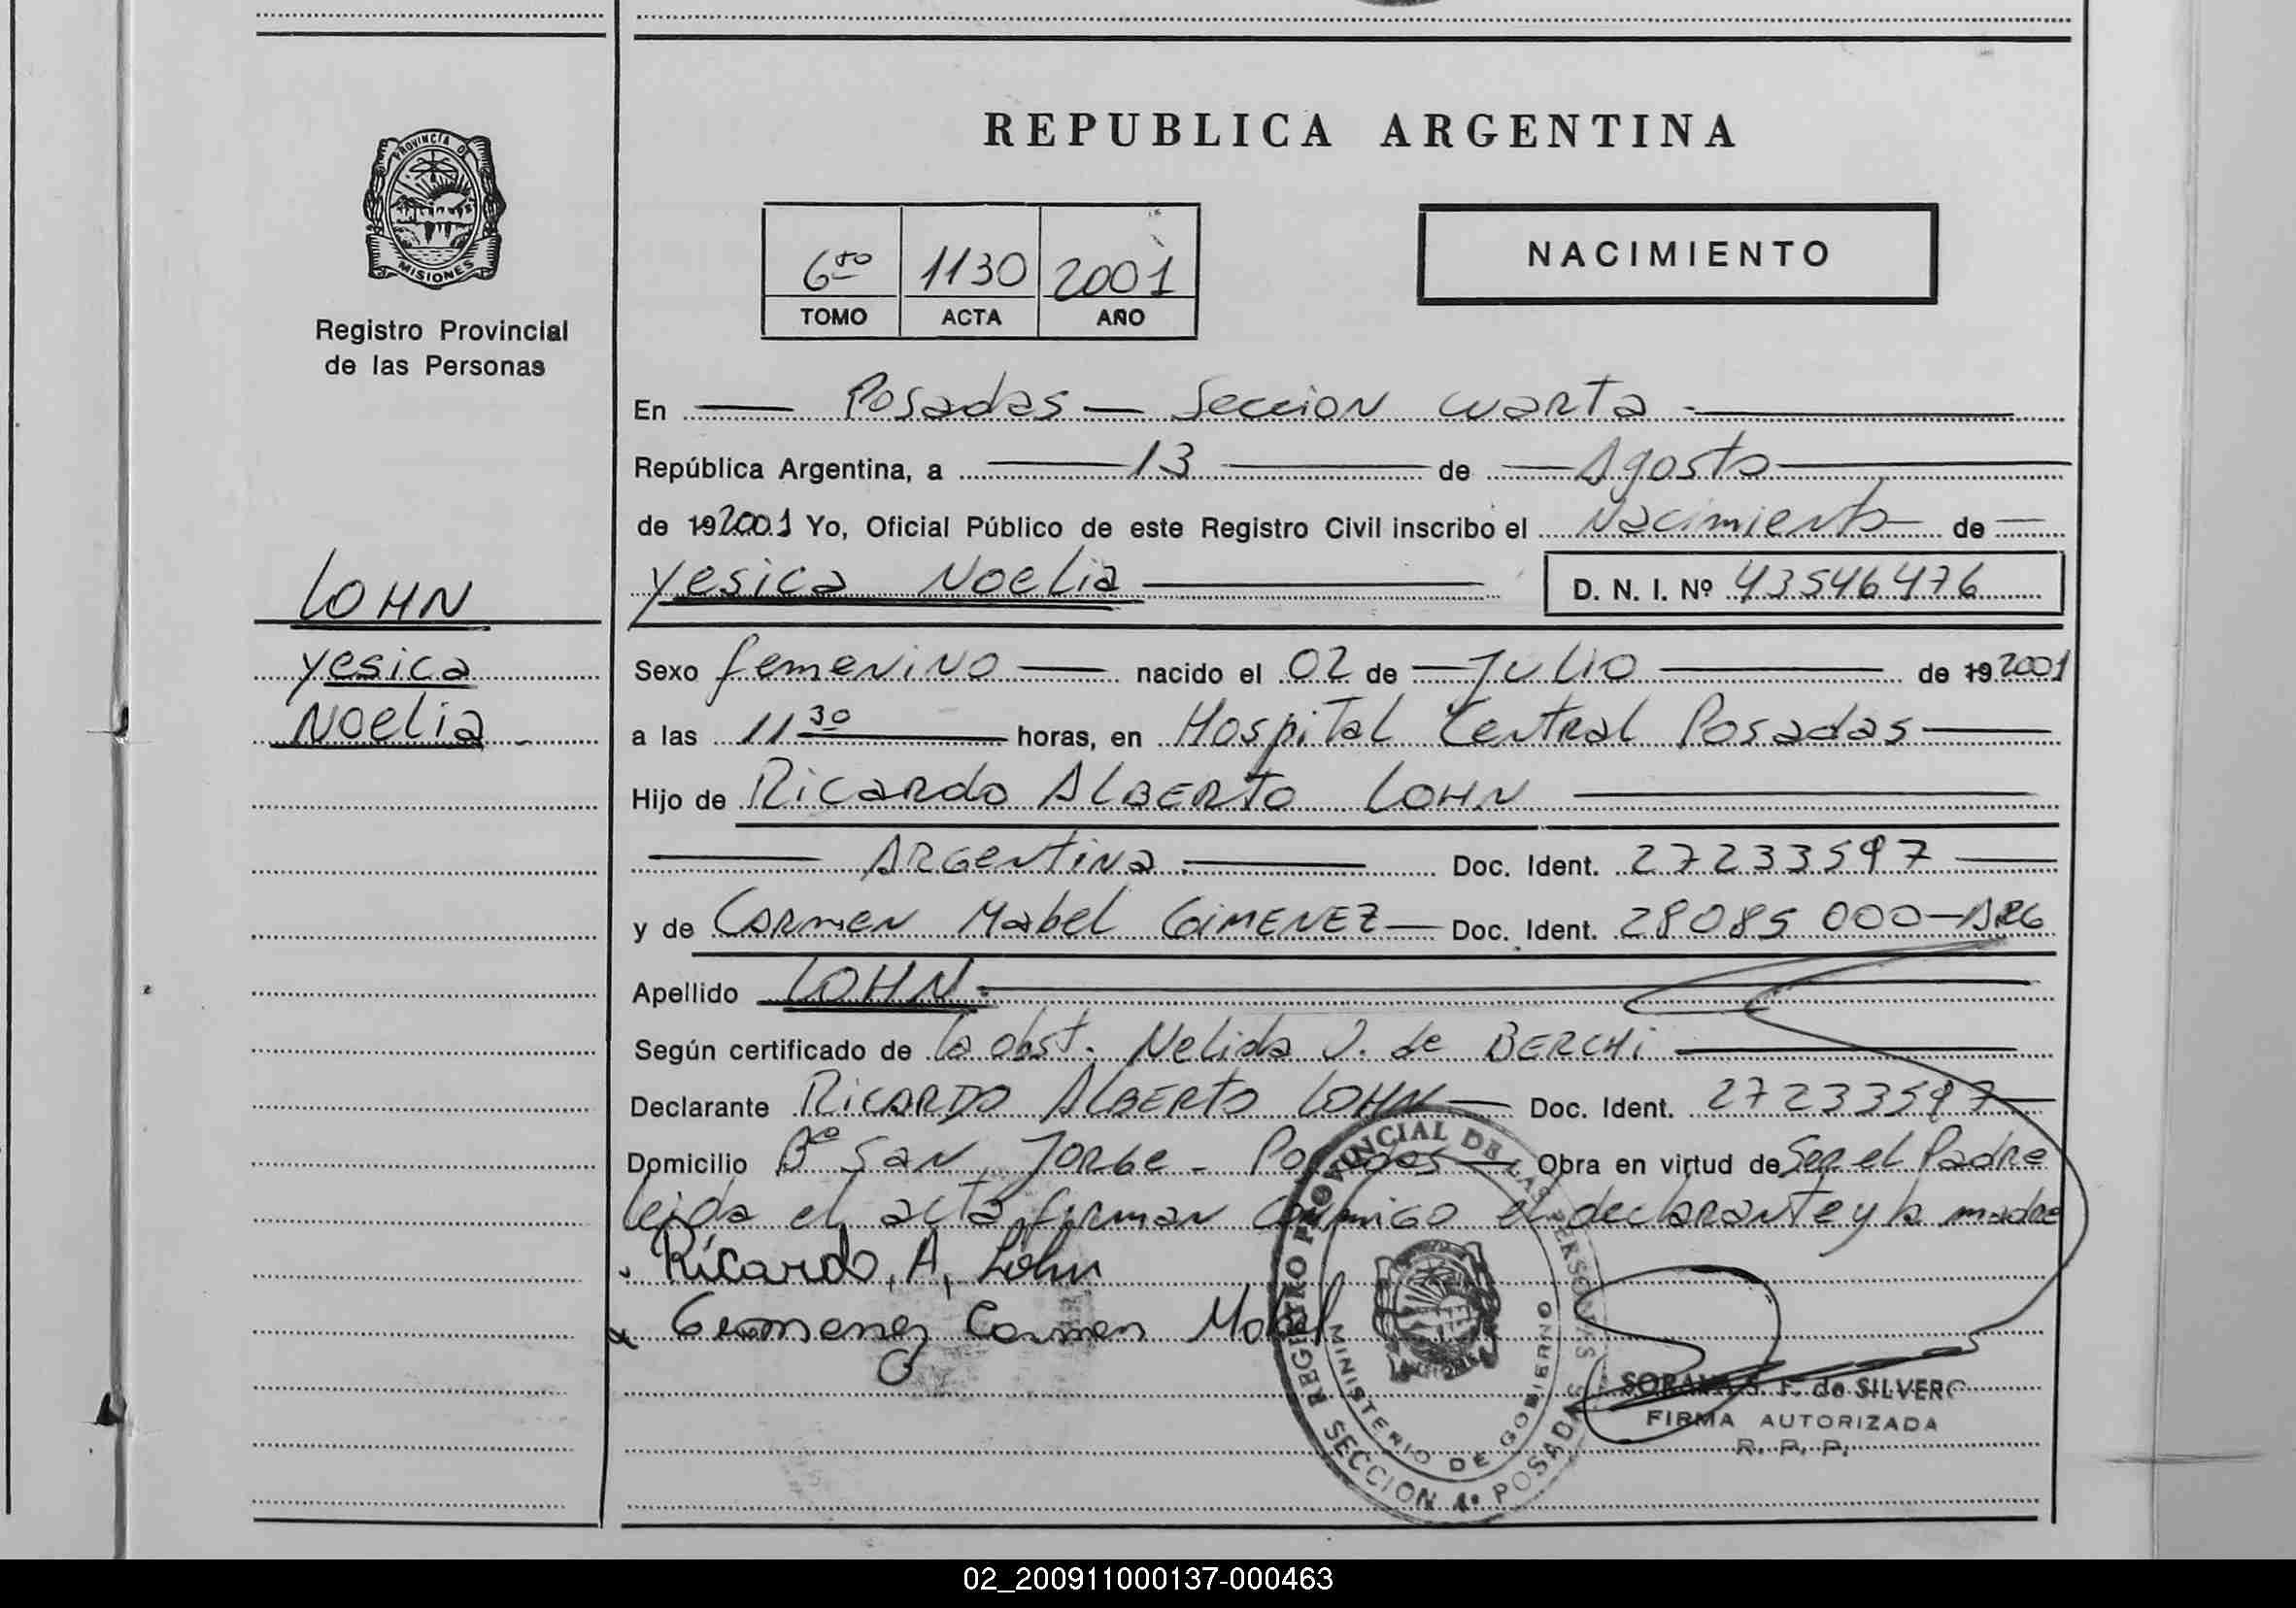 REPUBLICA ARGENTINA
PROVINCIA DE
MISIONES
Registro Provincial
de las Personas
6to 1130 2001
TOMO ACTA AÑO
NACIMIENTO
LOHN
Yesica
Noelia
En Posadas - Seccion cuarta
República Argentina, a 13 de Agosto
de 192001 Yo, Oficial Público de este Registro Civil inscribo el Nacimiento de
Yesica Noelia D. N. I. Nº 43546476
Sexo femenino nacido el 02 de Julio de 192001
a las 11 30 horas, en Hospital Central Posadas
Hijo de Ricardo ALBERTO LOHN
ARGentina Doc. Ident. 27233597
y de CARMEN Mabel GIMENEZ Doc. Ident. 28085000-ARG
Apellido LOHN
Según certificado de la obst. Nelida J. de BERCHI
Declarante RICARDO ALBERTO LOHN Doc. Ident. 27233597
Domicilio Bº San Jorge - Posadas Obra en virtud de Ser el Padre
leida el acta firman conmigo el declarante y la madre
Ricardo, A, Lohn
Gimenez Carmen Mabel
REGISTRO PROVINCIAL DE LAS PERSONAS
MINISTERIO DE GOBIERNO
SECCION 4º POSADAS
SORAYA S. F. de SILVERO
FIRMA AUTORIZADA
R. P. P.
02_200911000137-000463